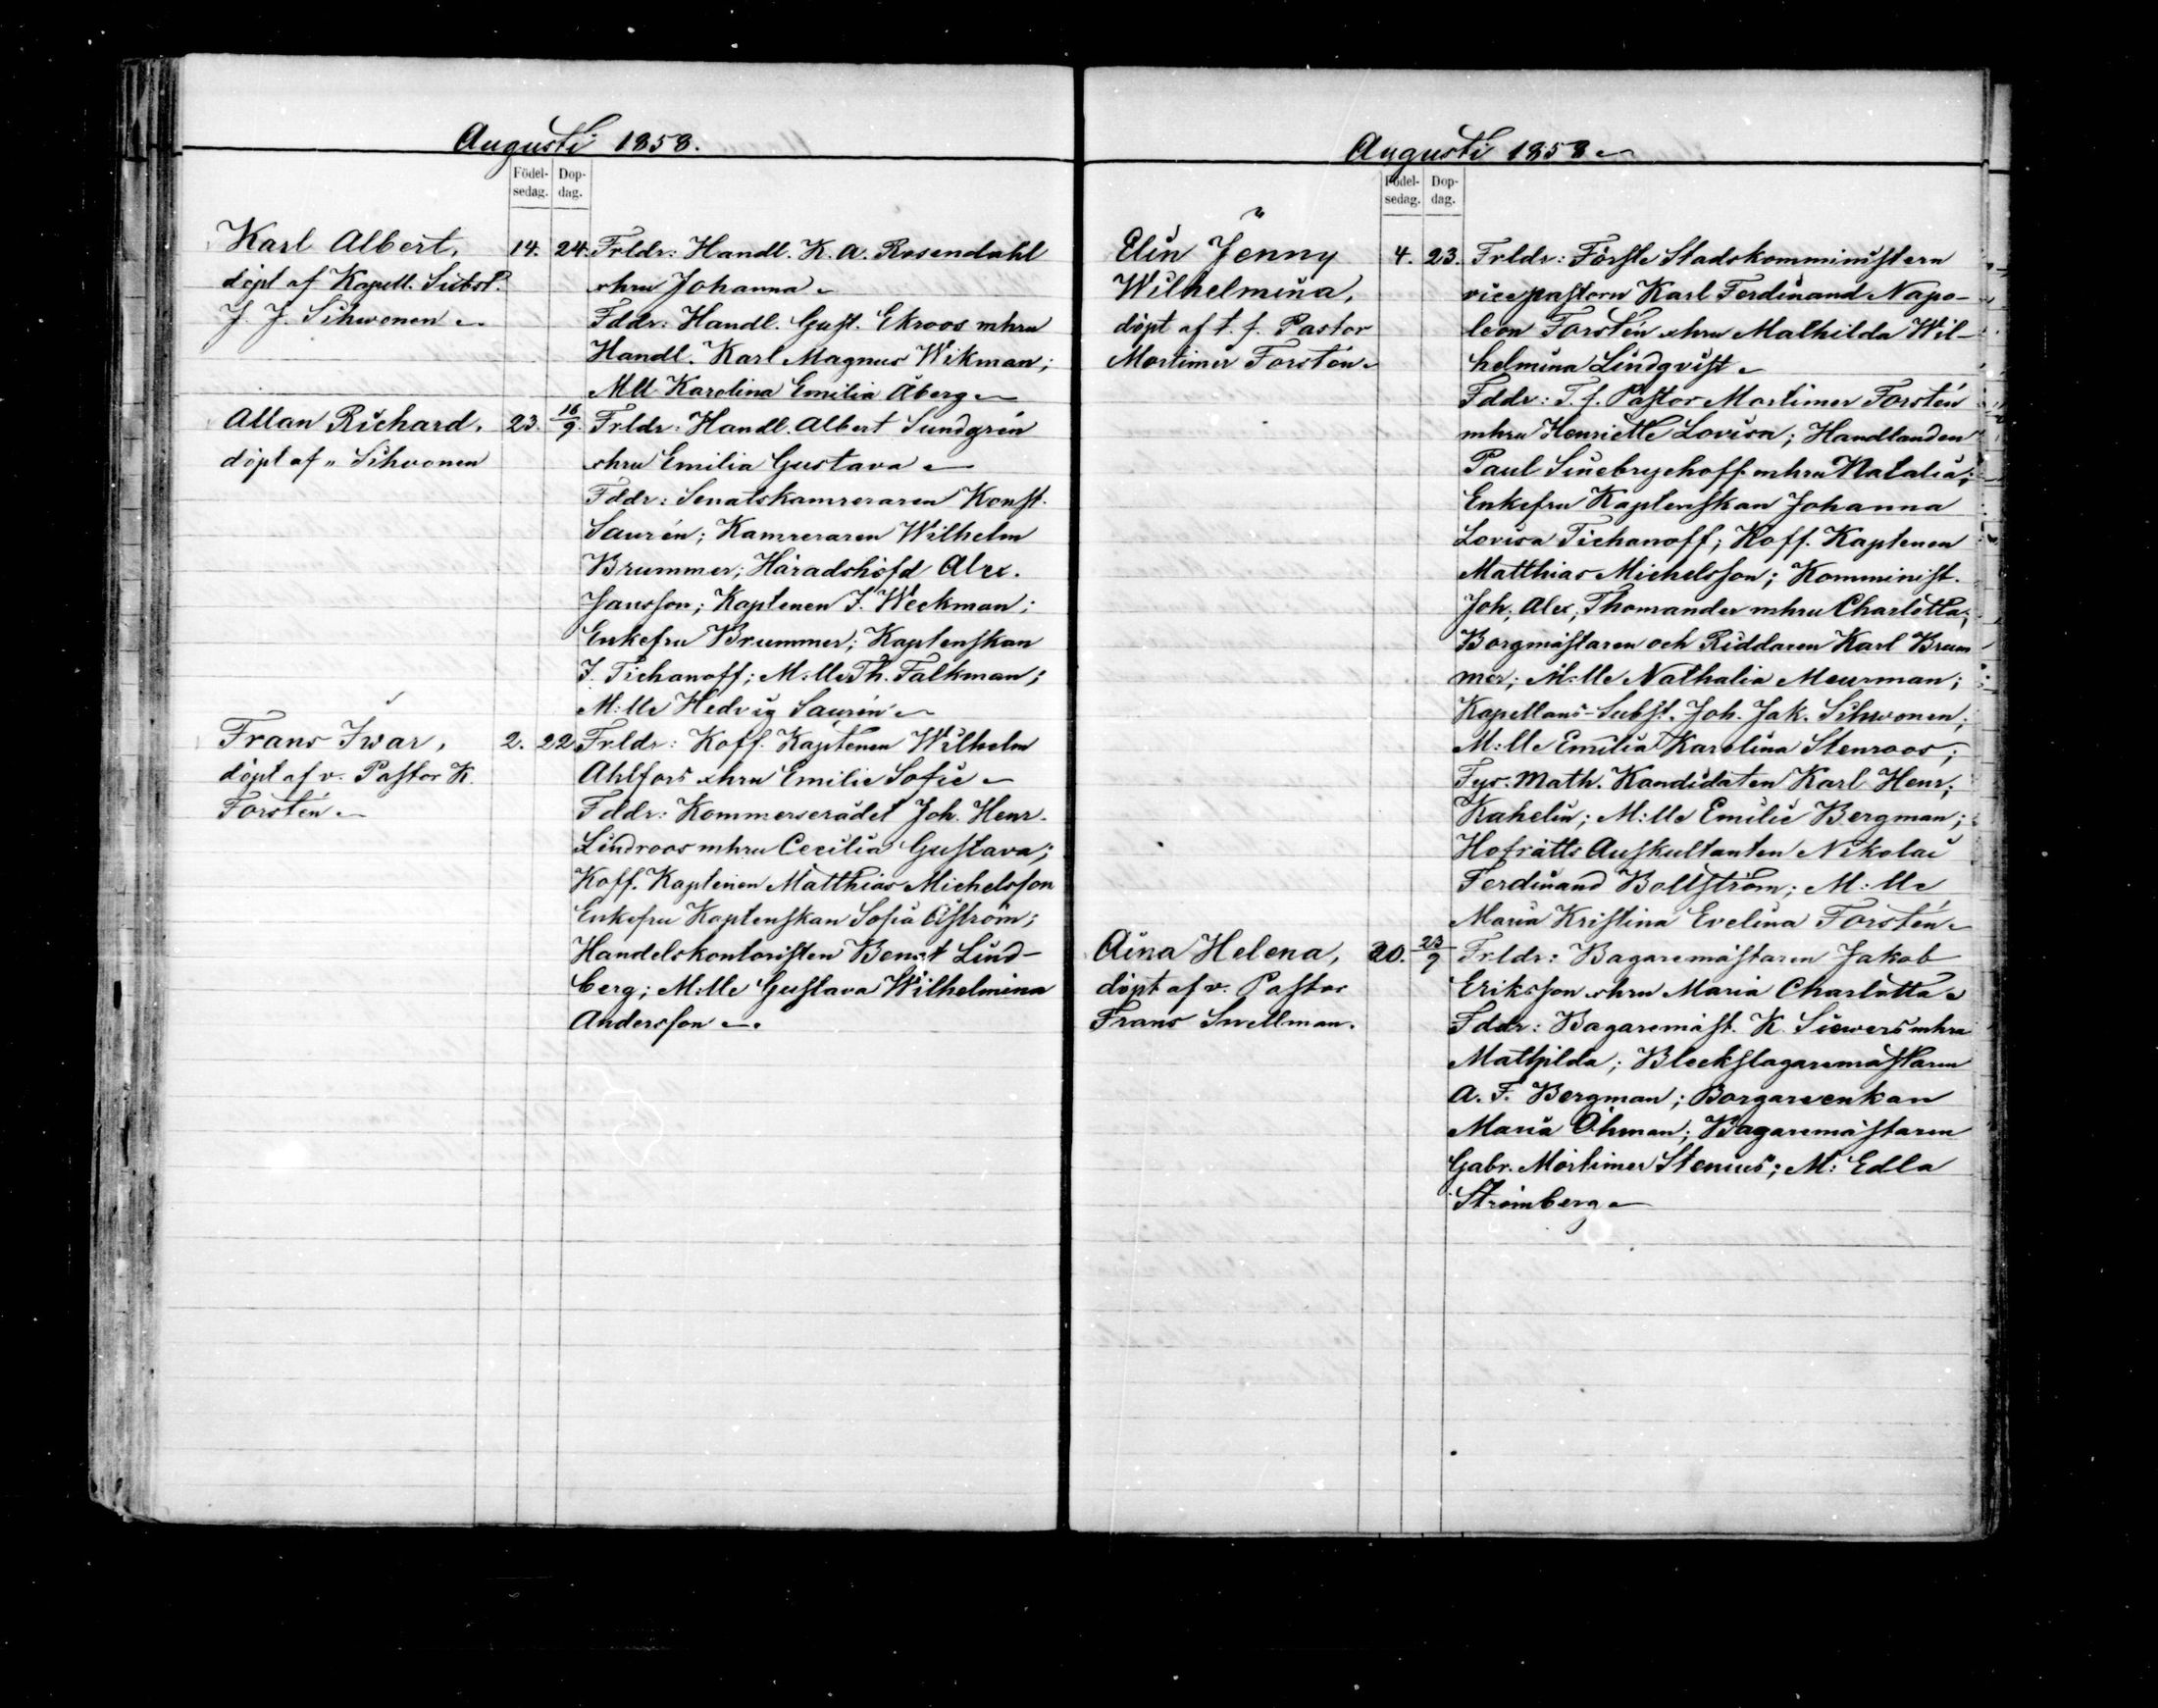 Augusti 1858.
Födel-
sedag.
Dop-
dag.
Karl Albert,
döpt af Kapell. Subst.
J. J. Sihvonen
14. 24.
Frldr: Handl. K. A. Rosendahl
o hru Johanna
Fddr: Handl. Gust. Ekroos m hru
Handl. Karl Magnus Wikman;
Mll Karolina Emilia Åberg
Allan Richard,
döpt af „ Sihvonen
23. 16/9.
Frldr: Handl. Albert Sundgrén
o hru Emilia Gustava
Fddr: Senatskamreraren Konst.
Saurén; Kamreraren Wilhelm
Brummer; Häradshöfd Alex.
Jansson; Kaptenen J. Weckman;
Enkefru Brummer; Kaptenskan
J. Tichanoff; M:lle Th. Falkman;
M:lle Hedvig Saurén
Frans Iwar,
döpt af v. Pastor K.
Forstén
2. 22.
Frldr: Koff. Kaptenen Wilhelm
Ahlfors o hru Emilie Sofie
Fddr: Kommerserådet Joh. Henr.
Lindroos m hru Cecilia Gustava;
Koff. Kaptenen Matthias Michelsson
Enkefru Kaptenskan Sofia Åström;
Handelskontoristen Bengt Lind-
berg; M:lle Gustava Wilhelmina
Andersson
Augusti 1858
Födel-
sedag.
Dop-
dag.
Elin Jenny
Wilhelmina,
döpt af t. f. Pastor
Mortimer Forstén
4. 23.
Frldr: Förste Stadskomministern
vice pastorn Karl Ferdinand Napo-
leon Forstén o hru Mathilda Wil-
helmina Lindqvist
Fddr: T. f. Pastor Mortimer Forstén
m hru Henriette Lovisa; Handlanden
Paul Sinebrychoff m hru Natalia;
Enkefru Kaptenskan Johanna
Lovisa Tichanoff; Koff. Kaptenen
Matthias Michelsson; Komminist.
Joh. Alex. Thomander m hru Charlotta;
Borgmästaren och Riddaren Karl Brum
mer; M:lle Nathalia Meurman;
Kapellans-Subst. Joh. Jak. Sihwonen;
M:lle Emilia Karolina Stenroos;
Fys. Math. Kandidaten Karl Henr.
Kahelin; M:lle Emilie Bergman;
Hofrätts Auskultanten Nikolai
Ferdinand Boltström; M:lle
Maria Kristina Evelina Forstén
Aina Helena,
döpt af v. Pastor
Frans Snellman.
20. 23/9
Frldr: Bagaremästaren Jakob
Eriksson o hru Maria Charlotta
Fddr: Bagaremäst. K. Siewers m hru
Mathilda; Bleckslagaremästaren
A. F. Bergman; Borgareenkan
Maria Öhman; Bagaremästaren
Gabr. Mortimer Stenius; M: Edla
Strömberg